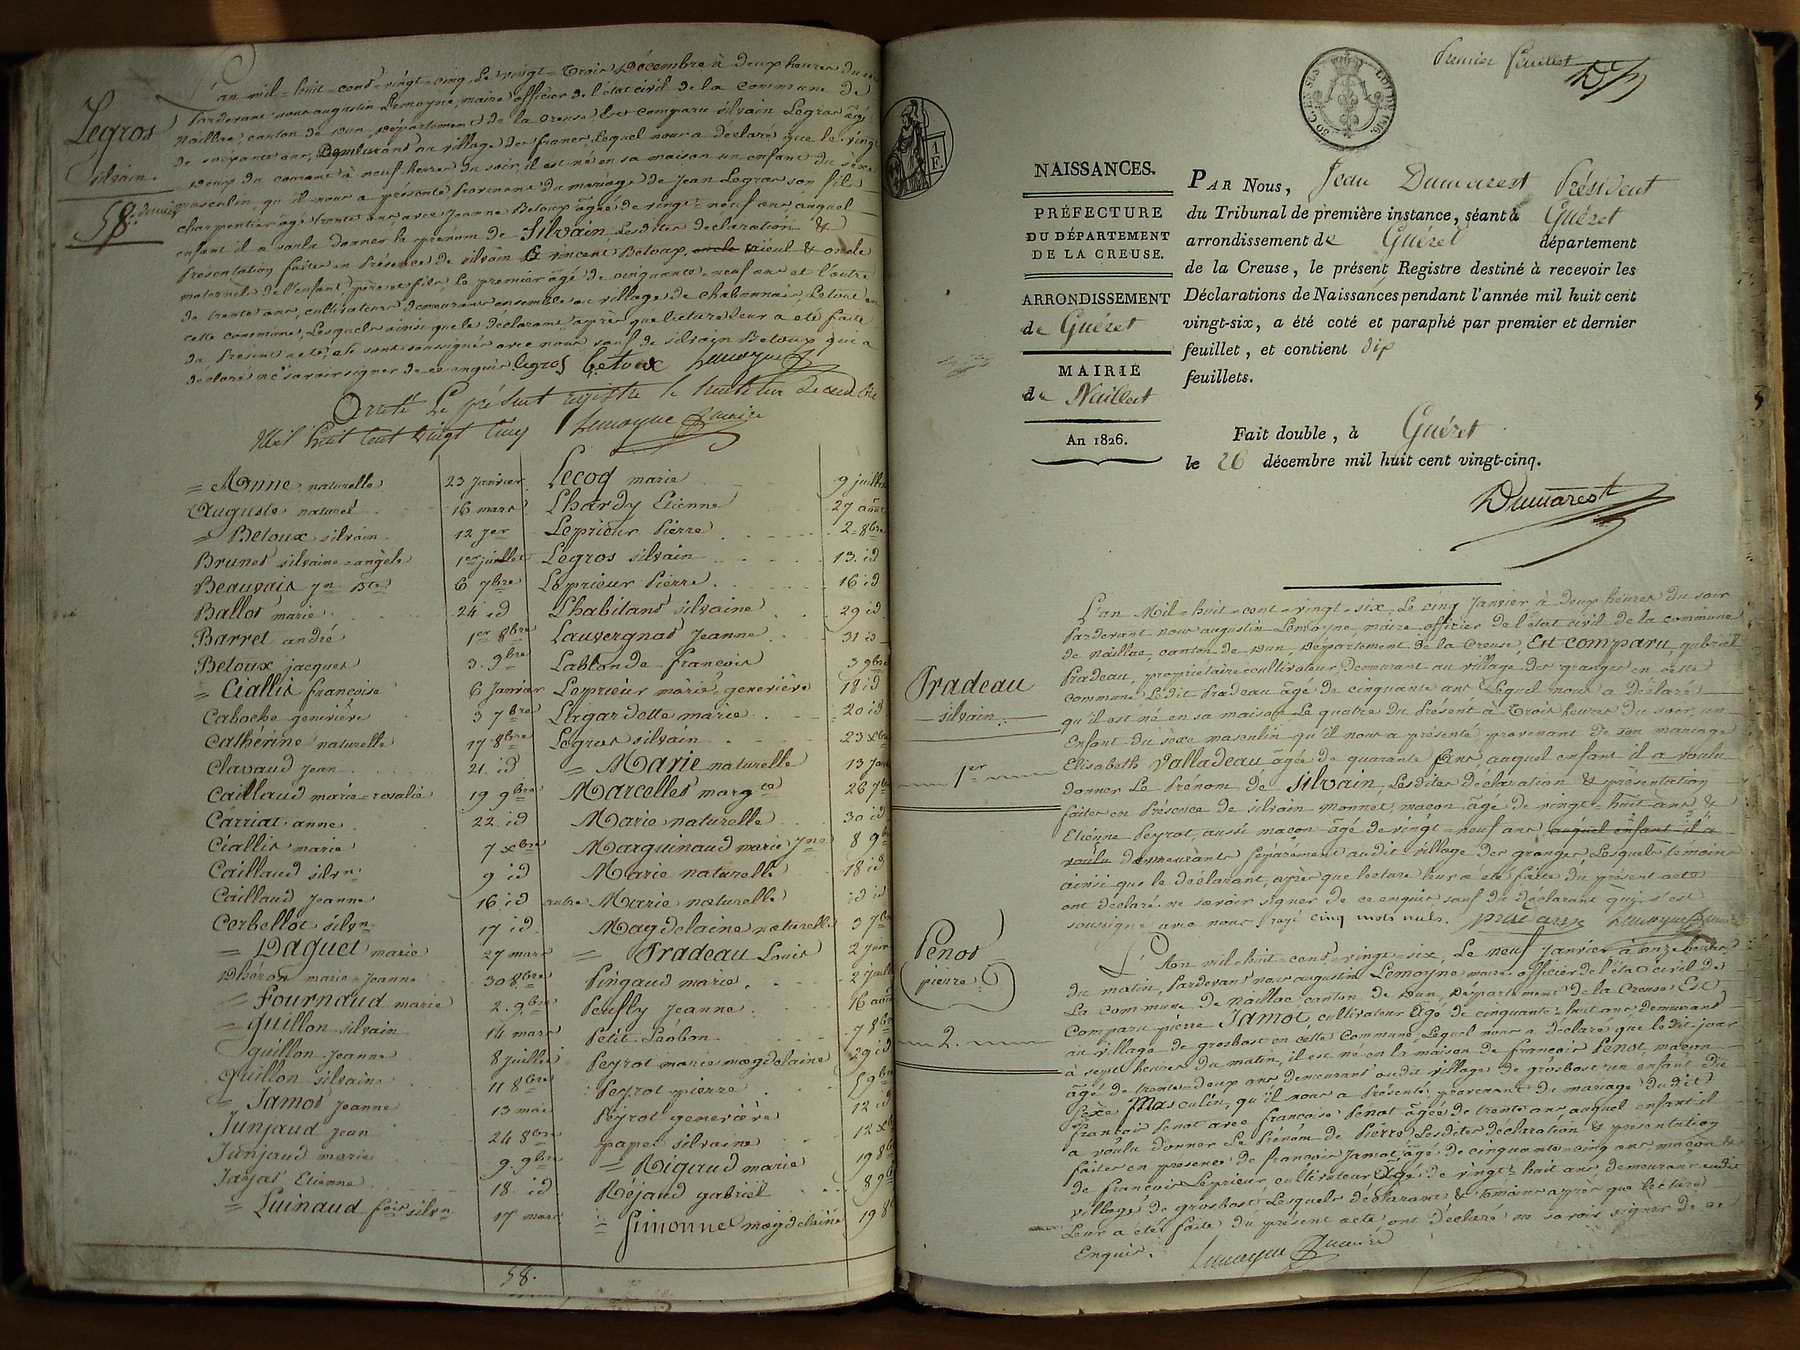 Legros
silvain.
58e dernier
L'an mil-huit-cent-vingt-cinq le vingt-trois Décembre à deux heures du soir
Pardevant nous augustin Lemoyne, maire officier de l'état civil de la commune de
Naillac, canton de Dun, Département de la Creuse, Est comparu silvain Legros âgé
de soixante ans, Demeurant au village des francs, Lequel nous a déclaré que le vingt
deux du courant à neuf heures du soir, il est né en sa maison un enfant du sexe
masculin, qu'il nous a présenté, Provenant du mariage de Jean Legros son fils
charpentier âgé trente ans avec Jeanne Betoux âgée de vingt-neuf ans auquel
enfant il a voulu donner le prénom de Silvain Lesdites déclaration &
Présentation faites en Présence de silvain & vincent Betoux, oncle aieul & oncle
maternels de l'enfant, père et fils, Le premier âgé de cinquante neuf ans et l'autre
de trente ans, cultivateurs demeurans ensemble au village de chabannais, Le tout en
cette commune, Lesquels ainsi que le déclarant après que lecture leur a été faite
du Présent acte, se sont soussignés avec nous sauf de silvain Betoux qui a
déclaré ne savoir signer de ce enquis Legros Betoux Lemoyne
Arrêté Le présent registre le huit un decembre
Mil huit cent vingt cinq Lemoyne maire
= Anne, naturelle 23 Janvier
Auguste naturel 16 mars
= Betoux silvain 12 Jer
Brunet silvaine-angèle 1er juillet
Beauvais Jn Bte 6 7bre
Ballot marie 24 id
Barret andré 1er 8bre
Betoux jacques 3. 9bre
= Ciallis françoise 6 Janvier
Caboche geneviève 3 7bre
Cathérine naturelle 17 8bre
Clavaud jean 21. id
Caillaud marie-rosalie 19 9bre
Carriat anne 22. id
Ciallis marie 7 xbre
Caillaud silvn 9 id
Caillaud jeanne 16 id
Corbellot silvn 17 id.
= Daguet marie 27 mars
Dhéron marie-jeanne 30 8bre
= Fournaud marie 2. 9bre
= Guillon silvain 14 mars
Guillon Jeanne 8 Juillet
Guillon silvaine 11 8bre
= Jamot Jeanne 13 mai
Junjaud Jean 24 8bre
Junjaud marie 9. 9bre
Jayat Etienne 18. id
= Luinaud fois silvn 17 mars
58.
Lecoq marie 9 juillet
Lhardy Etienne 27 août
Leprieur Pierre 2. 8bre
Legros silvain 13. id
Leprieur Pierre 16 id
Lhabitant silvaine 29 id
Lauvergnat Jeanne 31 id
Lablonde françois 3 9bre
Leprieur marie-geneviève 18 id
Ligardette marie 20 id
Legros silvain 23 xbre
= Marie naturelle 13 Jan
Marcelles margte 26 7bre
Marie naturelle 30 id
Marquinaud marie Jne 8 9bre
Marie naturelle 18 id
autre Marie naturelle id id
Magdelaine naturelle 3 7bre
= Pradeau Louis 2 Juin
Pingaud marie 2 juillet
Peufly Jeanne 16 août
Petit Léobon 7 8bre
Peyrot marie magdelaine 29 id
Peyrot pierre 5 9bre
Peyrot geneviève 12 id
papet silvaine 12 xbre
= Rigaud marie 19 8bre
Réjaud gabriel 8 9bre
= Simonnet magdelaine 19 8
1 F.
Premier feuillet
50 C. EN SUS
LOI DE 1816
NAISSANCES.
PRÉFECTURE
DU DÉPARTEMENT
DE LA CREUSE.
ARRONDISSEMENT
de Guéret
MAIRIE
de Naillat
An 1826.
PAR Nous, Jean Dumarest Président
du Tribunal de première instance, séant à Guéret
arrondissement de Guéret département
de la Creuse, le présent Registre destiné à recevoir les
Déclarations de Naissances pendant l'année mil huit cent
vingt-six, a été coté et paraphé par premier et dernier
feuillet, et contient dix
feuillets.
Fait double, à Guéret
le 26 décembre mil huit cent vingt-cinq.
Dumarest
Pradeau
silvain.
1er
L'an Mil-huit-cent-vingt-six, Le cinq Janvier à deux heures du soir
Pardevant nous augustin Lemoyne, maire officier de l'état civil de la commune
de naillac, canton de Dun, Département de la Creuse, Est comparu gabriel
Pradeau, propriétaire cultivateur, Demeurant au village des granges en cette
Commune, Ledit Pradeau âgé de cinquante ans Lequel nous a déclaré
qu'il est né en sa maison Le quatre du Présent à Trois heures du soir, un
Enfant du sexe masculin qu'il nous a présenté provenant de son mariage
Elisabeth Valladeau âgée de quarante Ans, auquel enfant il a voulu
donner Le Prénom de Silvain, Lesdites Déclaration & présentation
faites en Présence de silvain monnet, maçon âgé de vingt-huit ans &
Etienne Peyrot aussi maçon âgé de vingt-neuf ans, auquel enfant il a
voulu demeurants séparément audit village des granges Lesquels témoins
ainsi que le déclarant, après que lecture leur a été faite du présent acte
ont déclaré ne savoir signer de ce enquis sauf du déclarant qui s'est
soussigné avec nous rayé cinq mots nuls. pradeaux Lemoyne maire
Penot
pierre
2.
L'An mil-huit-cent-vingt-six, Le neuf Janvier à onze heures
du matin, Pardevant nous augustin Lemoyne maire officier de l'état civil de
La commune de naillac, canton de Dun, Département de la Creuse Est
Comparu pierre Jamot, cultivateur âgé de cinquante-huit ans demeurant
au village de grosbost en cette Commune, Lequel nous a déclaré que le dit jour
à sept heures du matin, il est né en la maison de françois Penot, maçon
âgé de trente-deux ans demeurant audit village de grosbost un enfant du
sexe Masculin, qu'il nous a Présenté, provenant de mariage dudit
françois Penot avec françoise Penot âgée de trente ans, auquel enfant il
a voulu donner Le Prénom de Pierre, Lesdites déclaration & présentation
faites en présence de françois Jamot, âgé de cinquante-cinq ans, maçon &
de françois Leprieur, cultivateur âgé de vingt-huit ans demeurant audit
village de grosbost, Lesquels déclarant & témoins après que lecture
Leur a été faite du présent acte, ont déclaré ne savoir signer de ce
Enquis. Lemoyne maire